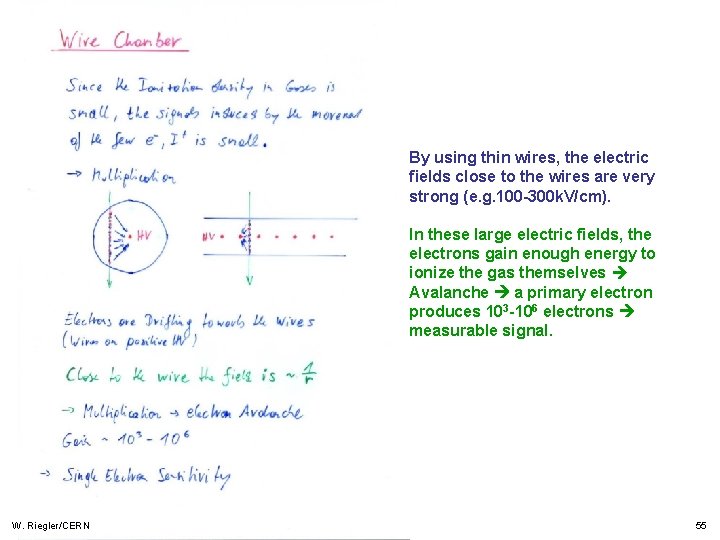 Wire Chamber
Since the Ionization density in Gases is
small, the signals induced by the movement
of the few e⁻, I⁺ is small.
→ Multiplication
HV
HV
Electrons are Drifting towards the wires
(Wires on positive HV)
Close to the wire the field is ~ 1/r
→ Multiplication → electron Avalanche
Gain ~ 10³ - 10⁶
→ Single Electron Sensitivity
By using thin wires, the electric
fields close to the wires are very
strong (e. g. 100 -300 k. V/cm).
In these large electric fields, the
electrons gain enough energy to
ionize the gas themselves →
Avalanche → a primary electron
produces 10³-10⁶ electrons →
measurable signal.
W. Riegler/CERN
55